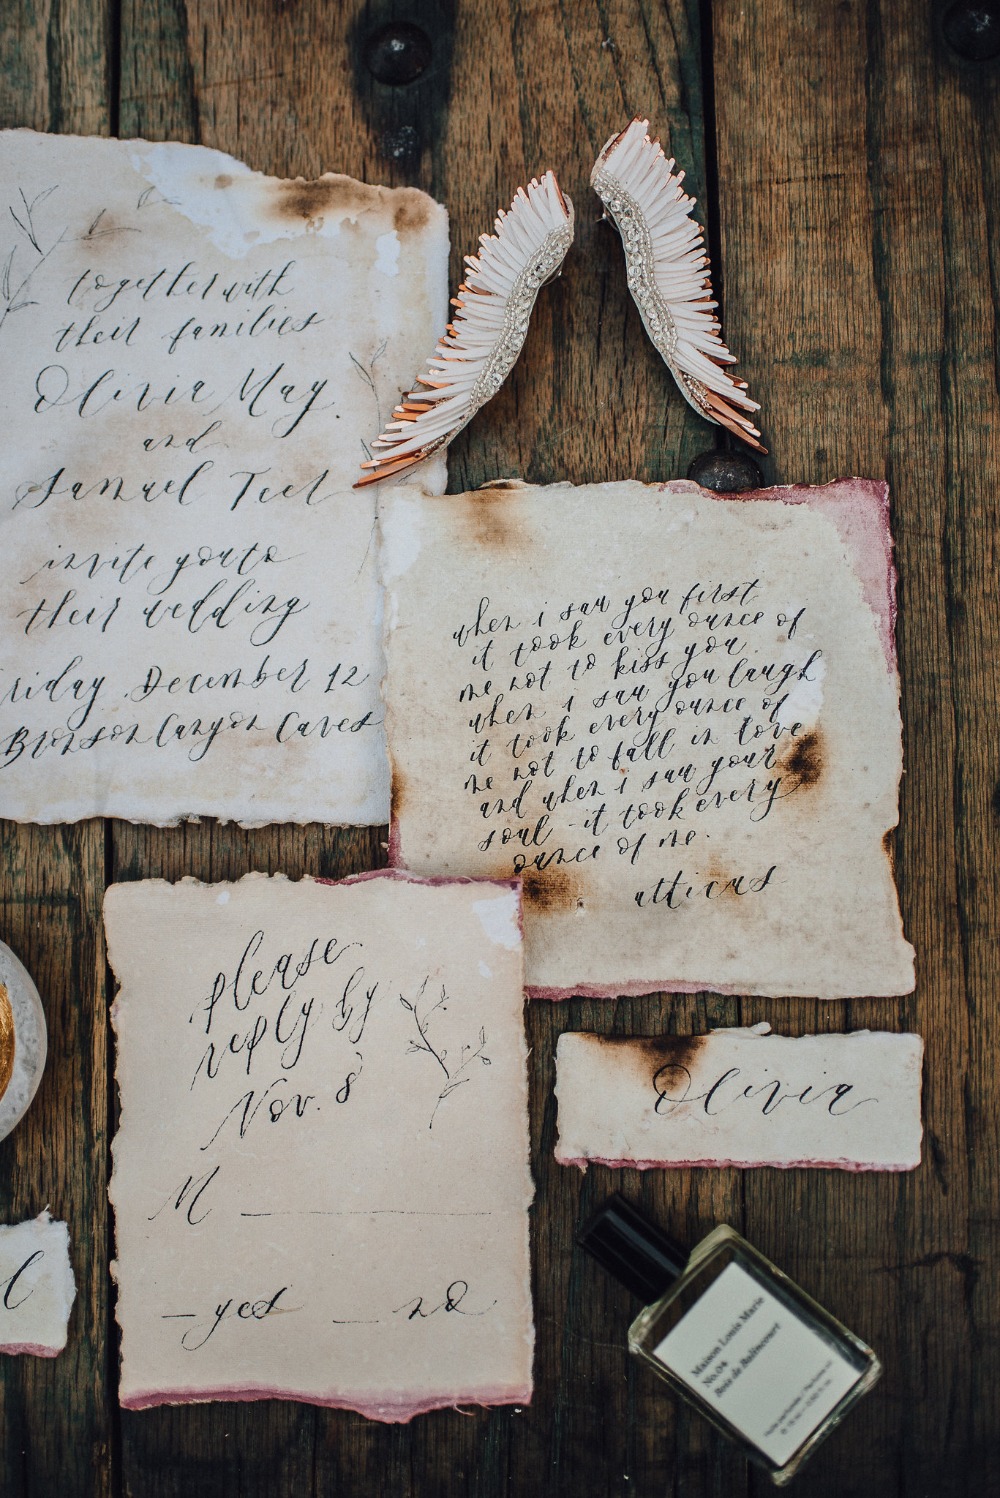 together with
their families
Olivia May
and
Samuel Teet
invite you to
their wedding
riday December 12
Bronson Canyon Caves
when i saw you first
it took every ounce of
me not to kiss you
when i saw you laugh
it took every ounce of
me not to fall in love
and when i saw your
soul - it took every
ounce of me.
atticus
please
reply by
Nov. 8
M
yes no
Olivia
Maison Louis Marie
No.04
Bois de Balincourt